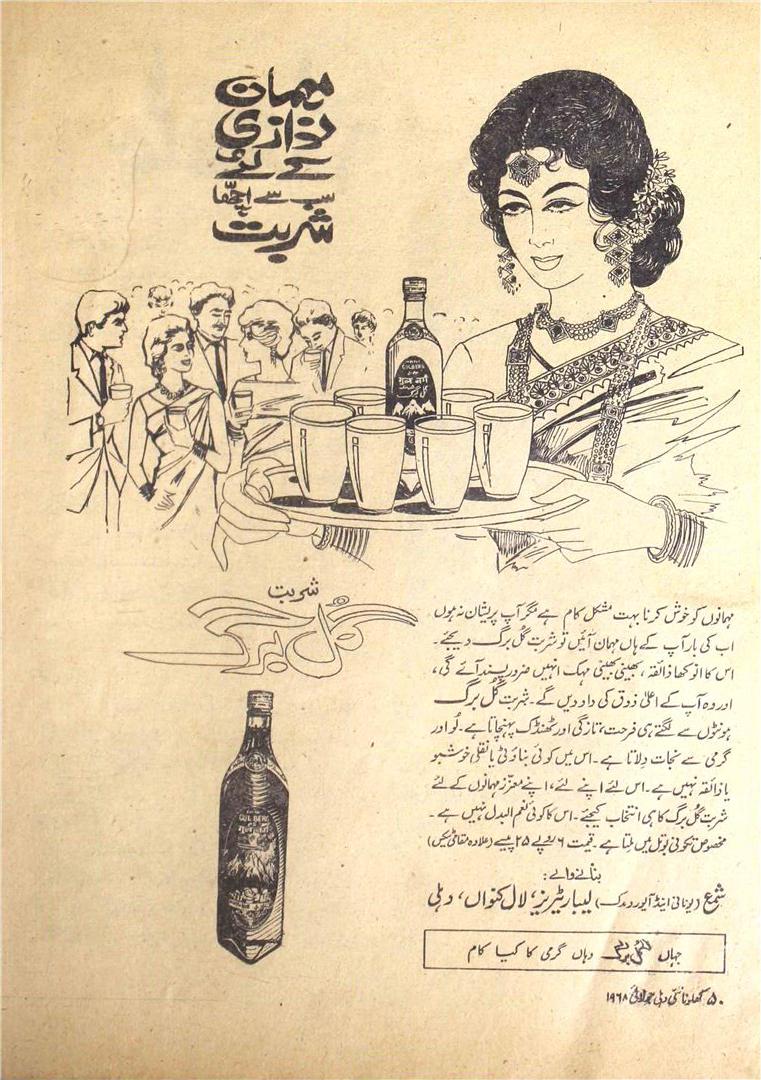 مہمان
نوازی
کے لئے
سب سے اچھا
شربت
GULBERG
गुल बर्ग
گل برگ
شربت
گل برگ
مہمانوں کو خوش کرنا بہت مشکل کام ہے مگر آپ پریشان نہ ہوں
اب کی بار آپ کے ہاں مہمان آئیں تو شربت گُل برگ دیجئے۔
اس کا انوکھا ذائقہ، بھینی بھینی مہک انہیں ضرور پسند آئے گی،
اور وہ آپ کے اعلیٰ ذوق کی داد دیں گے۔ شربت گُل برگ
ہونٹوں سے لگتے ہی فرحت، تازگی اور ٹھنڈک پہنچاتا ہے۔ لُو اور
گرمی سے نجات دِلاتا ہے۔ اس میں کوئی بناوٹی یا نقلی خوشبو
یا ذائقہ نہیں ہے۔ اس لئے اپنے لئے، اپنے معزّز مہمانوں کے لئے
شربت گُل برگ کا ہی انتخاب کیجئے۔ اس کا کوئی نعم البدل نہیں ہے۔
مخصوص تکونی بوتل میں ملتا ہے۔ قیمت ۶ روپے ۲۵ پیسے (علاوہ مقامی ٹیکس)
بنانے والے:
شمع (یونانی اینڈ آیورویدک) لیبارٹیریز، لال کنواں، دہلی
GUL BERG
गुल बर्ग
جہاں گل برگ وہاں گرمی کا کیا کام
۵۰ کھلونا نئی دہلی جولائی ۱۹۶۸